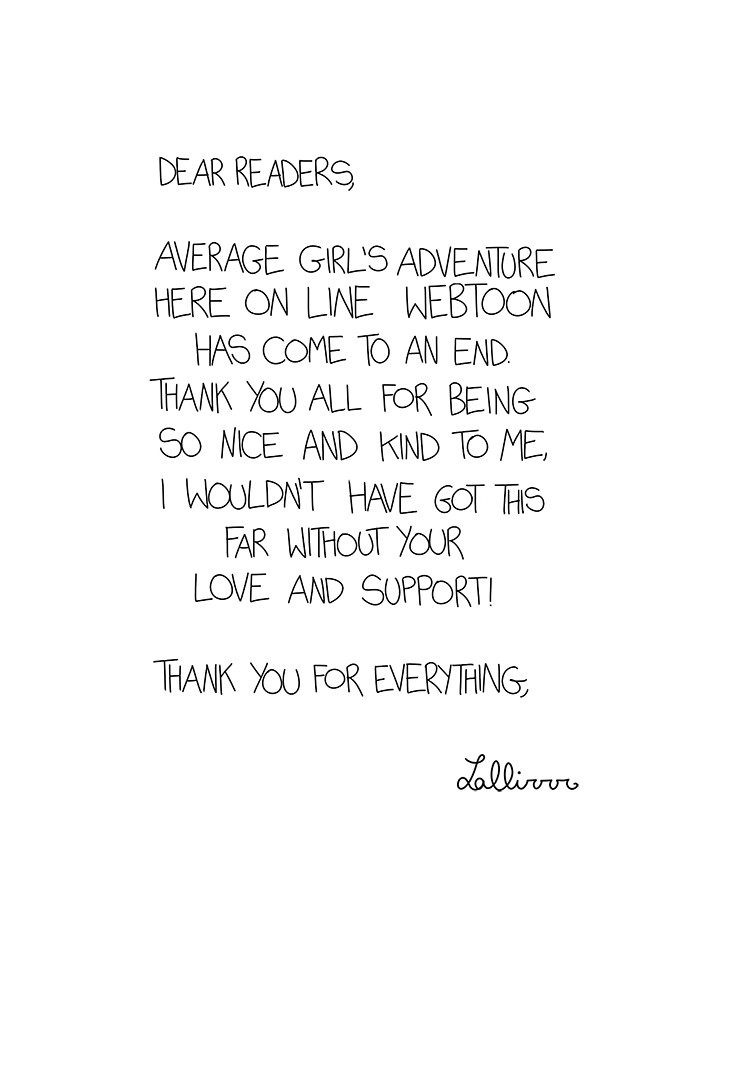 DEAR READERS,
AVERAGE GIRL'S ADVENTURE
HERE ON LINE WEBTOON
HAS COME TO AN END.
THANK YOU ALL FOR BEING
SO NICE AND KIND TO ME,
I WOULDN'T HAVE GOT THIS
FAR WITHOUT YOUR
LOVE AND SUPPORT!
THANK YOU FOR EVERYTHING,